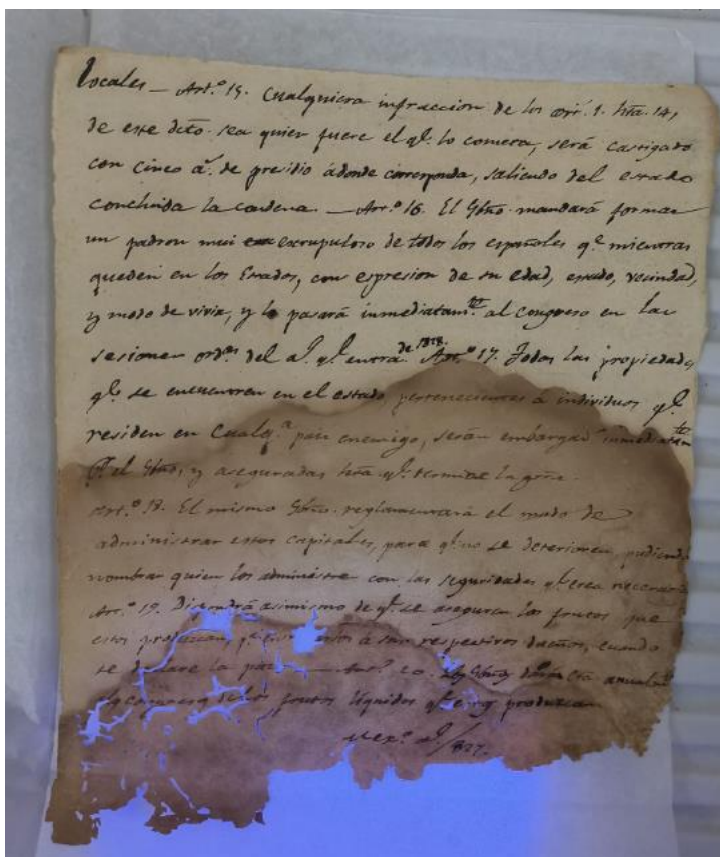 locales — Art.º 15. Cualquiera infraccion de los art.s 1. hta. 14,
de este dcto. sea quien fuere el q.e lo cometa, será castigado
con cinco a.s de presidio adonde corresponda, saliendo del estado
concluida la condena. — Art.º 16. El Gbno. mandará formar
un padron mui escrupuloso de todos los españoles q.e mientras
queden en los Estados, con espresion de su edad, estado, vecindad,
y modo de vivir, y lo pasará inmediatam.te al congreso en las
sesiones ord.s del a.o q.e entra de 1828. Art.º 17. Todas las propiedades
q.e se encuentren en el estado, pertenecientes á individuos q.e
residen en cualq.a pais enemigo, serán embargad inmediatam.te
p.r el Gbno, y aseguradas hta. q.e termine la
Art.º 18. El mismo Gbno. reglamentará el modo de
administrar estos capitales, para q.e no se deterioren, pudiendo
nombrar quien los administre con las seguridades q.e crea necesarias
Art.º 19. Dispondrá asimismo de q.e se aseguren los frutos que
estos produzcan, á sus respectivos dueños, cuando
se declare la paz. — Art.º 20. Gbno. anualm.te
frutos liquidos q.e produzcan
Mex.º 1827.